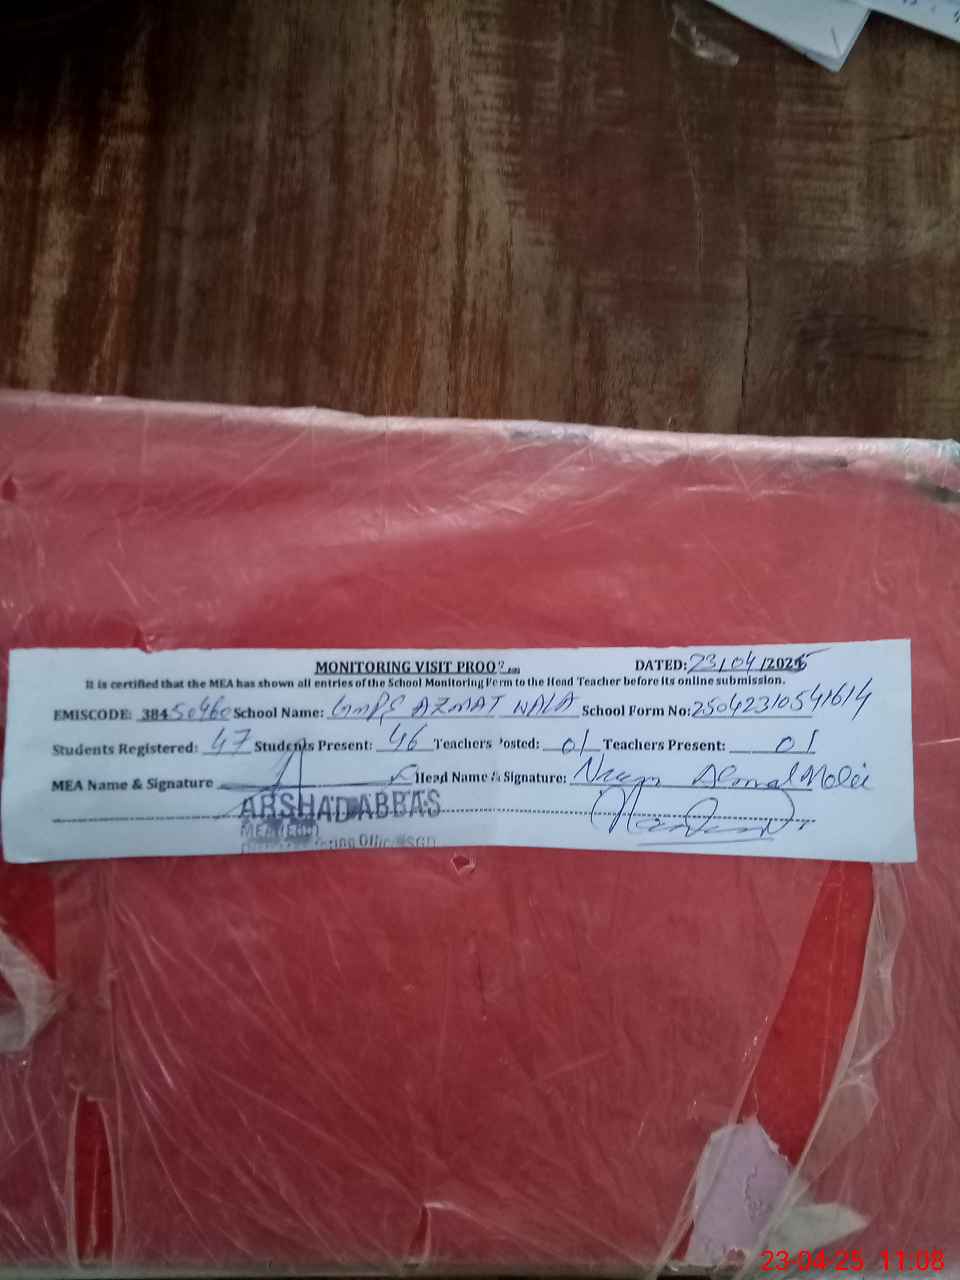 MONITORING VISIT PROO
DATED: 23/04/2025
It is certified that the MEA has shown all entries of the School Monitoring Form to the Head Teacher before its online submission.
EMISCODE: 38450460 School Name: GMPS AZMAT WALA School Form No: 25042310541614
Students Registered: 47 Students Present: 46 Teachers Posted: 01 Teachers Present: 01
MEA Name & Signature Head Name & Signature:
ARSHAD ABBAS
MEA
23-04-25 11:08